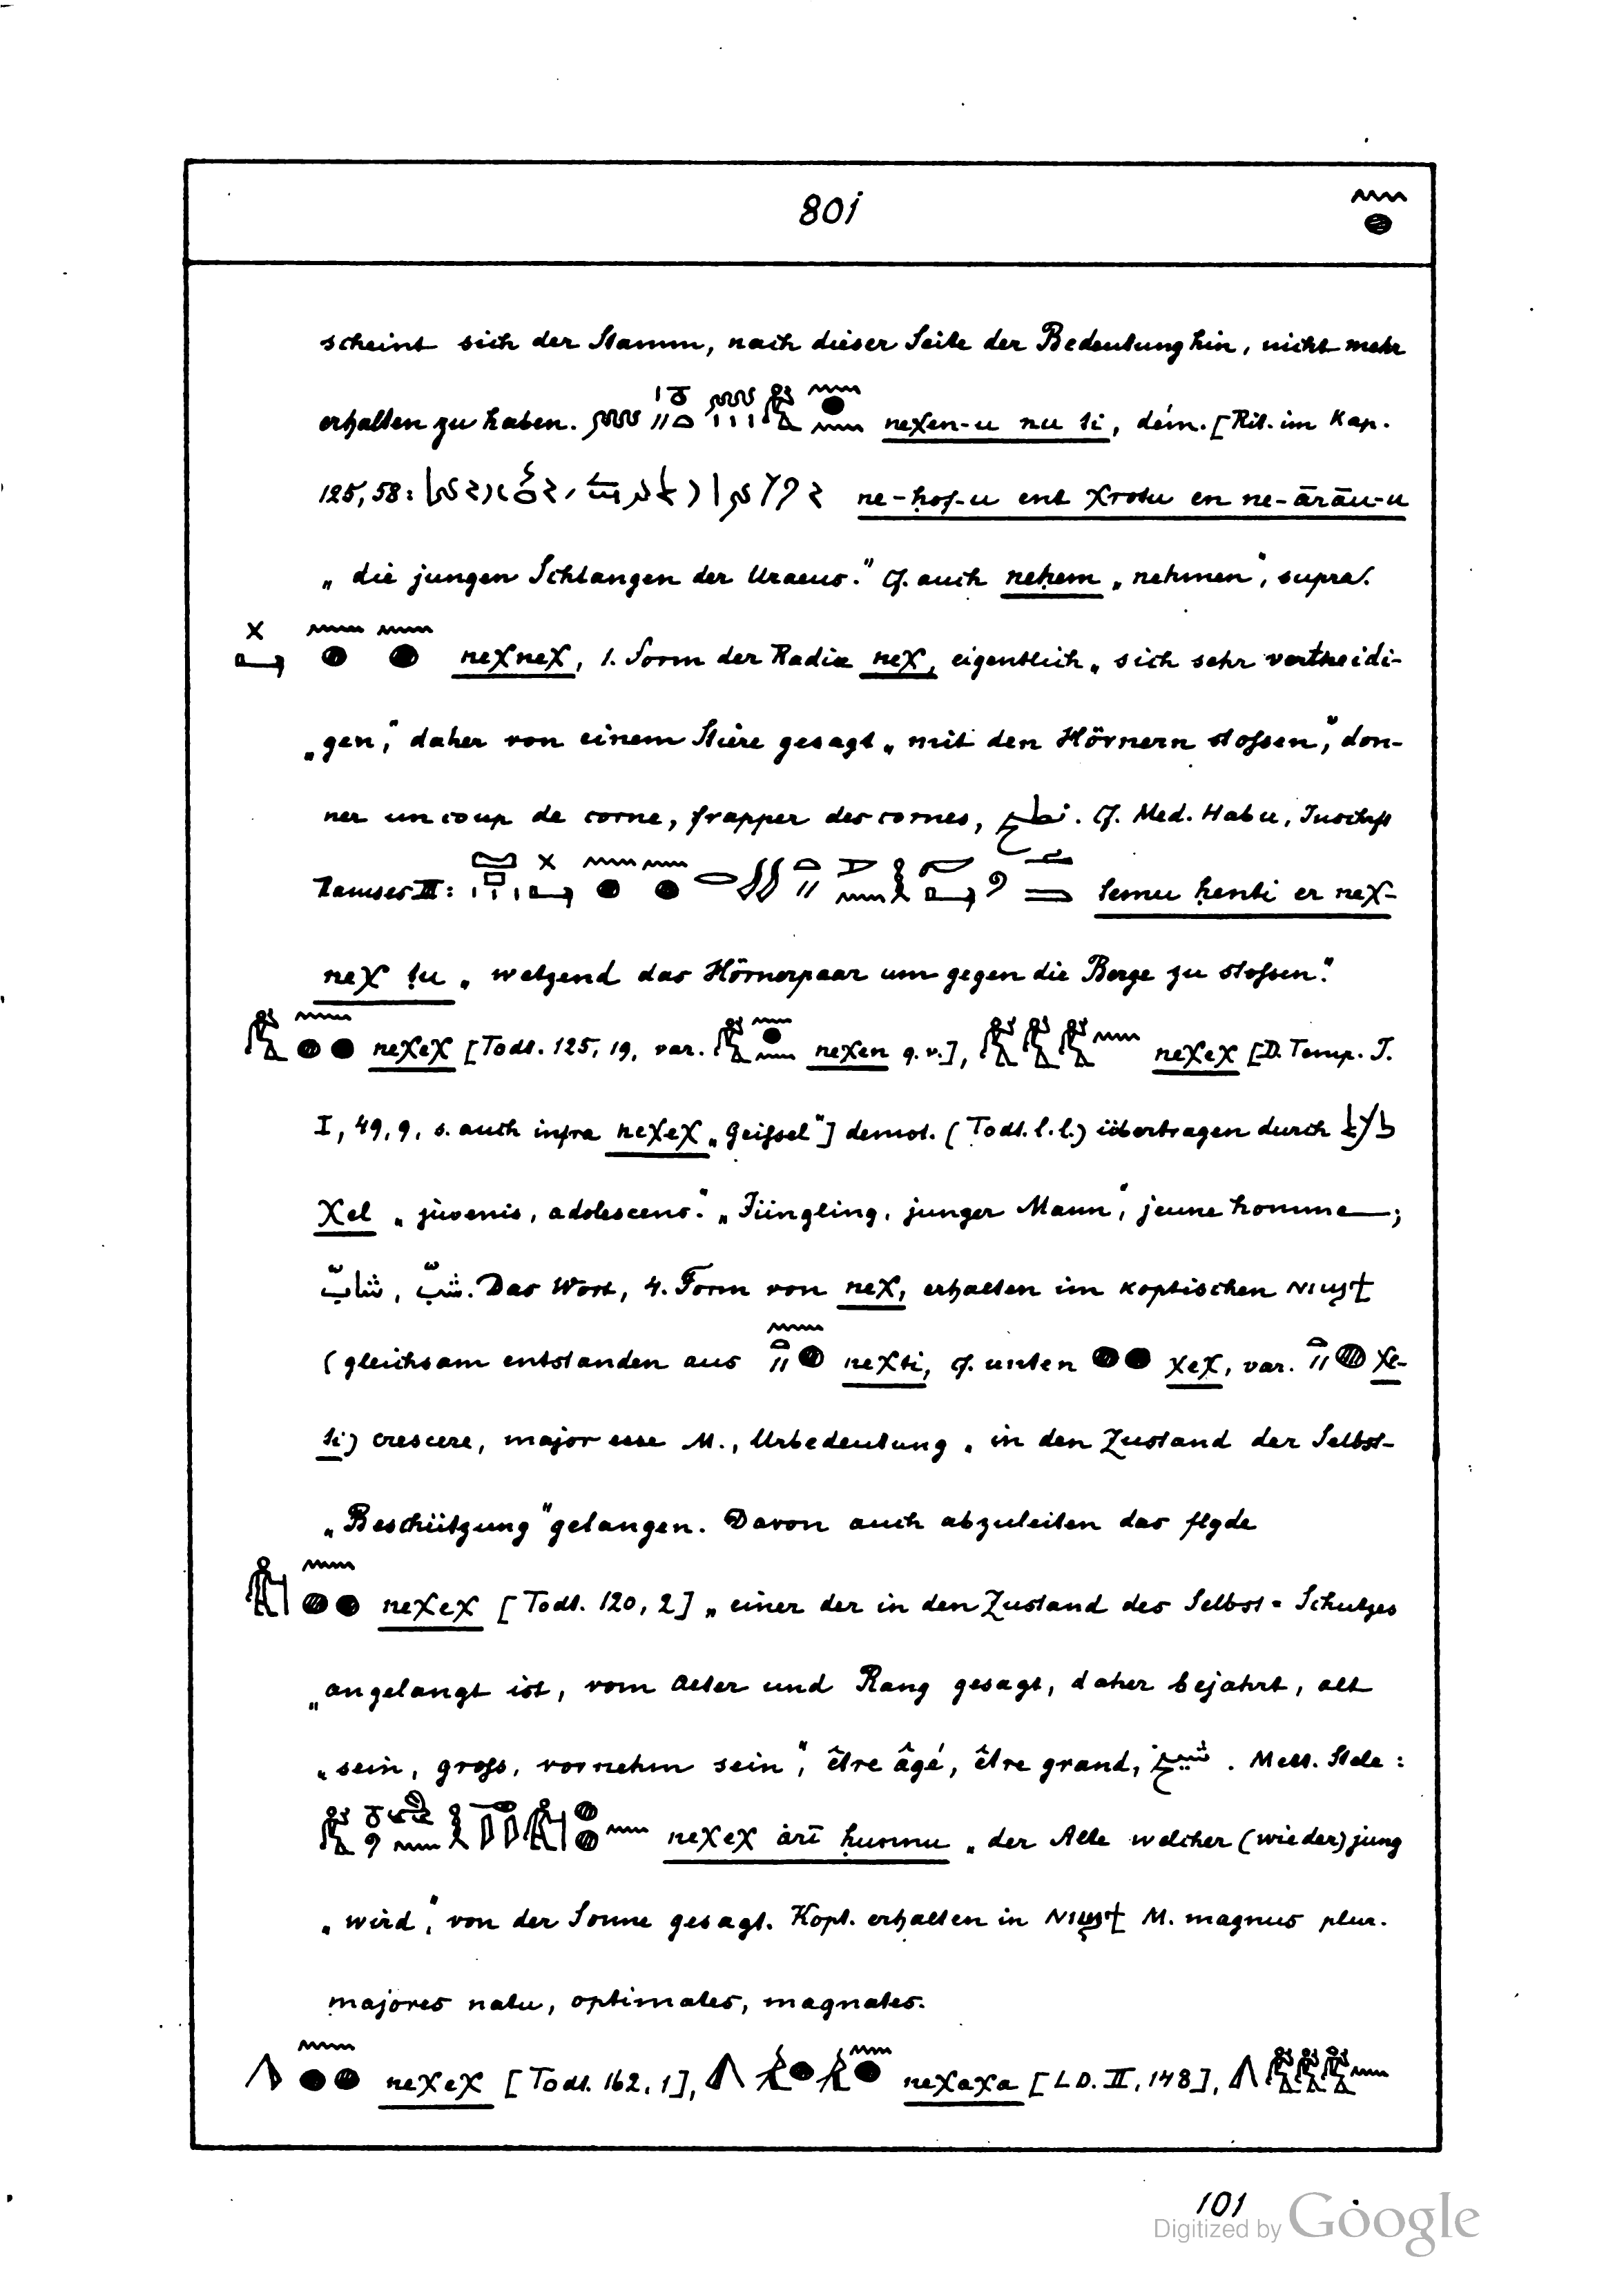 801
scheint sich der Stamm, nach dieser Seite der Bedeutung hin, nicht mehr
erhalten zu haben. neχen-u nu ti, dém. [Rit. im Kap.
125, 58: ne-ḥof-u ent χrotu en ne-ārāu-u
„die jungen Schlangen der Uraeus." Cf. auch neḥem „nehmen", supra.
neχneχ, 1. Form der Radix neχ, eigentlich „sich sehr vertheidi-
„gen," daher von einem Stiere gesagt „mit den Hörnern stossen," don-
ner un coup de corne, frapper des cornes, نطح. Cf. Med. Habu, Inschrift
Ramses III: semu ḥenti er neχ-
neχ tu „wetzend das Hörnerpaar um gegen die Berge zu stossen."
neχeχ [Todt. 125, 19, var. neχen q. v.], neχeχ [D. Temp. I.
I, 49, 9, s. auch infra neχeχ „Geissel"] demot. (Todt. l. l.) übertragen durch
χel „juvenis, adolescens." „Jüngling, junger Mann", jeune homme;
شابّ, شبّ. Das Wort, 4. Form von neχ, erhalten im koptischen ⲛⲓϣϯ
(gleichsam entstanden aus neχti, cf. unten χeχ, var. χe-
ti) crescere, major esse M., Urbedeutung „in den Zustand der Selbst-
„Beschützung" gelangen. Davon auch abzuleiten das flgde
neχeχ [Todt. 120, 2] „einer der in den Zustand des Selbst-Schutzes
„angelangt ist, vom Alter und Rang gesagt, daher bejahrt, alt
„sein, gross, vornehm sein", être âgé, être grand, شيخ. Mett. Stele:
neχeχ ȧrī ḥunnu „der Alte welcher (wieder) jung
„wird", von der Sonne gesagt. Kopt. erhalten in ⲛⲓϣϯ M. magnus plur.
majores natu, optimates, magnates.
neχeχ [Todt. 162, 1], neχaχa [LD. II, 148],
101
Digitized by Google